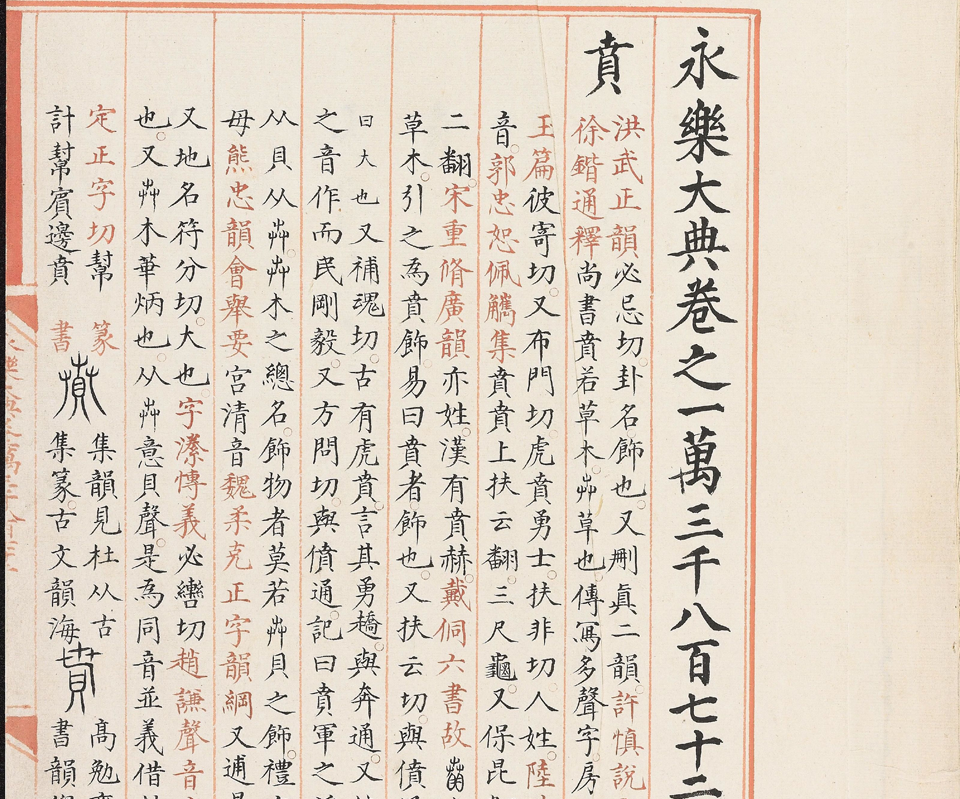 永樂大典卷之一萬三千八百七十二
賁
洪武正韻必忌切。卦名飾也。又刪眞二韻。許愼說
徐鍇通釋尚書賁若草木。艸草也。傳寫多聲字。房
玉篇彼寄切。又布門切虎賁勇士。扶非切。人姓。陸
音。郭忠恕佩觿集賁賁上扶云翻。三尺龜。又保昆
二翻。宋重脩廣韻亦姓。漢有賁赫。戴侗六書故
草木。引之爲賁飾。易曰賁者。飾也。又扶云切。與僨
曰大也又補魂切。古有虎賁。言其勇趫。與奔通。又
之音作而民剛毅。又方問切。與僨通。記曰賁軍之
从貝从艸。艸木之總名。飾物者莫若艸貝之飾。禮
母熊忠韻會舉要宮清音魏柔克正字韻綱又逋
又地名符分切。大也。字潫慱義必轡切趙謙聲音
也。又艸木華炳也。从艸意貝聲。是爲同音並義借
定正字切幫 篆 集韻見杜从古 高勉
計幫賓邊賁 書 集篆。古文韻海 書韻